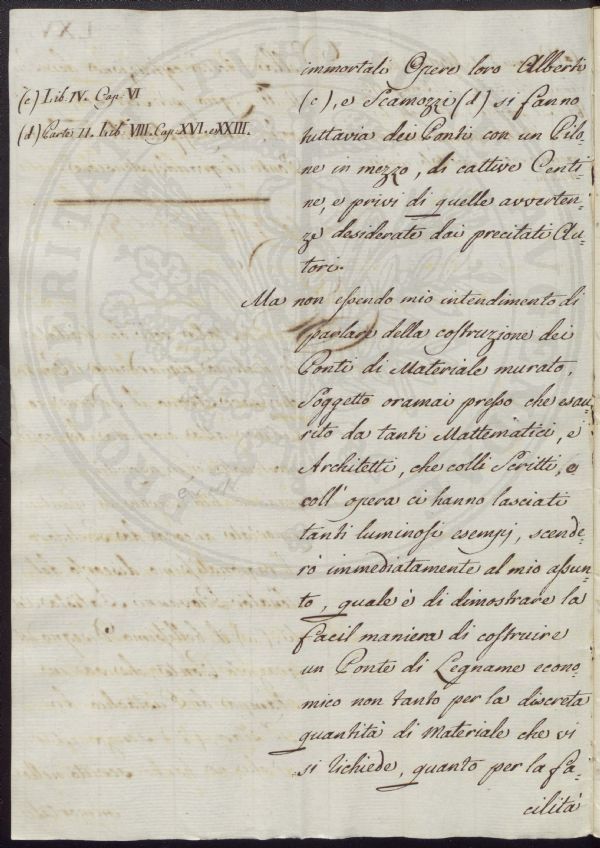 (c) Lib. IV. Cap. VI
(d) Parte II. Lib. VIII. Cap. XVI. e XXIII.
immortali Opere loro Alberti
(c), e Scamozzi (d) si fanno
tuttavia dei Ponti con un Pilo-
ne in mezzo, di cattive Centi-
ne, e privi di quelle avverten-
ze desiderate dai precitati Au-
tori.
Ma non essendo mio intendimento di
parlare della costruzione dei
Ponti di Materiale murato,
Soggetto oramai presso che esau-
rito da tanti Mattematici, e
Architetti, che colli Scritti, e
coll' opera ci hanno lasciati
tanti luminosi esempj, scende-
rò immediatamente al mio assun-
to, quale è di dimostrare la
facil maniera di costruire
un Ponte di Legname econo-
mico non tanto per la discreta
quantità di materiale che vi
si richiede, quanto per la fa-
cilità